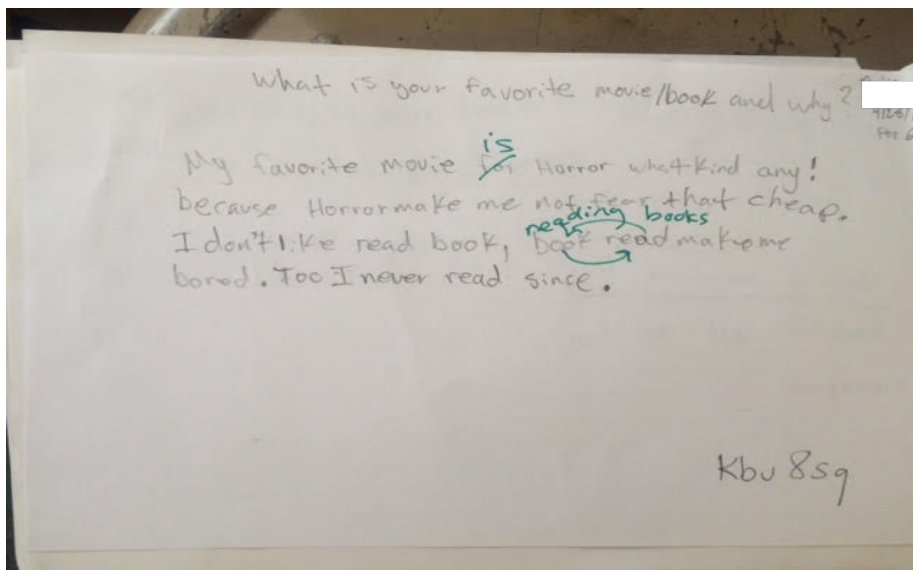 What is your favorite movie/book and why?
is
My favorite movie for Horror what kind any!
because Horror make me not fear that cheap.
reading books
I don't like read book, book read make me
bored. Too I never read since.
Kbu 8sq